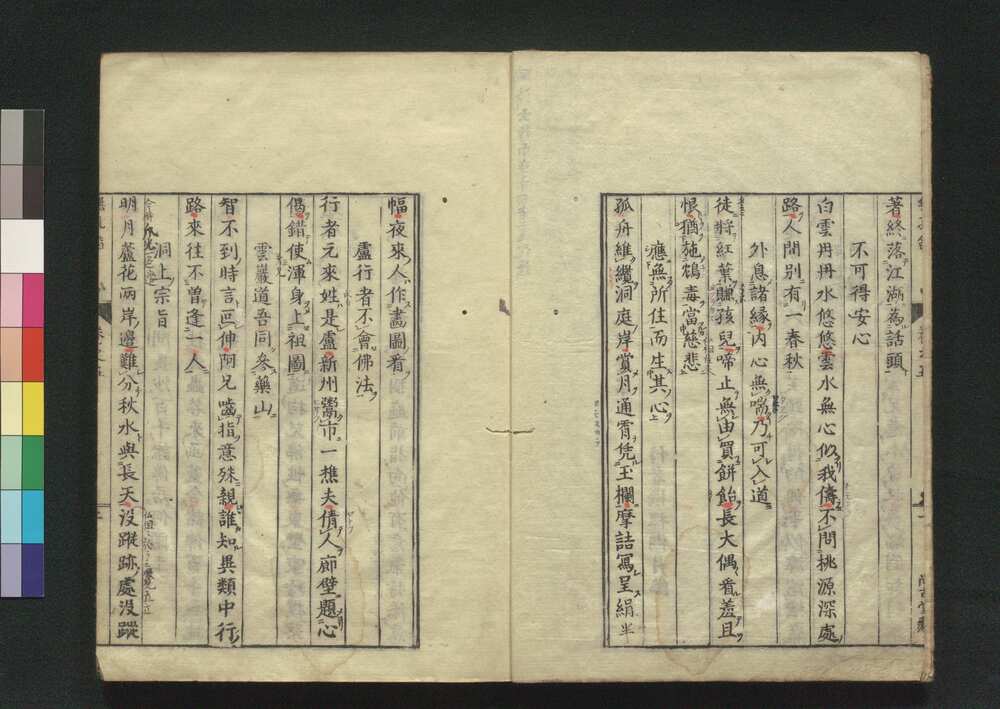 著終落江湖為話頭
不可得安心
白雲冉冉水悠悠雲水無心似我儔不問桃源深處
路人間別有一春秋
外息諸緣內心無喘乃可入道
徒將紅葉賺孩兒啼止無由買餅飴長大偶看羞且
恨猶施鴆毒當慈悲
應無所住而生其心
孤舟維纜洞庭岸賞月通宵凭玉欄摩詰寫呈絹坐
幅夜來人作畵圖看
盧行者不會佛法
行者元來姓是盧新州鬻市一樵夫倩人廊壁題心
偈錯使渾身上祖圖
雲巖道吾同參藥山
智不到時言叵伸阿兄嚙指意殊親誰知異類中行
路來往不曾逢一人
洞上宗旨
明月蘆花兩岸邊難分秋水與長天没蹤跡處没蹤